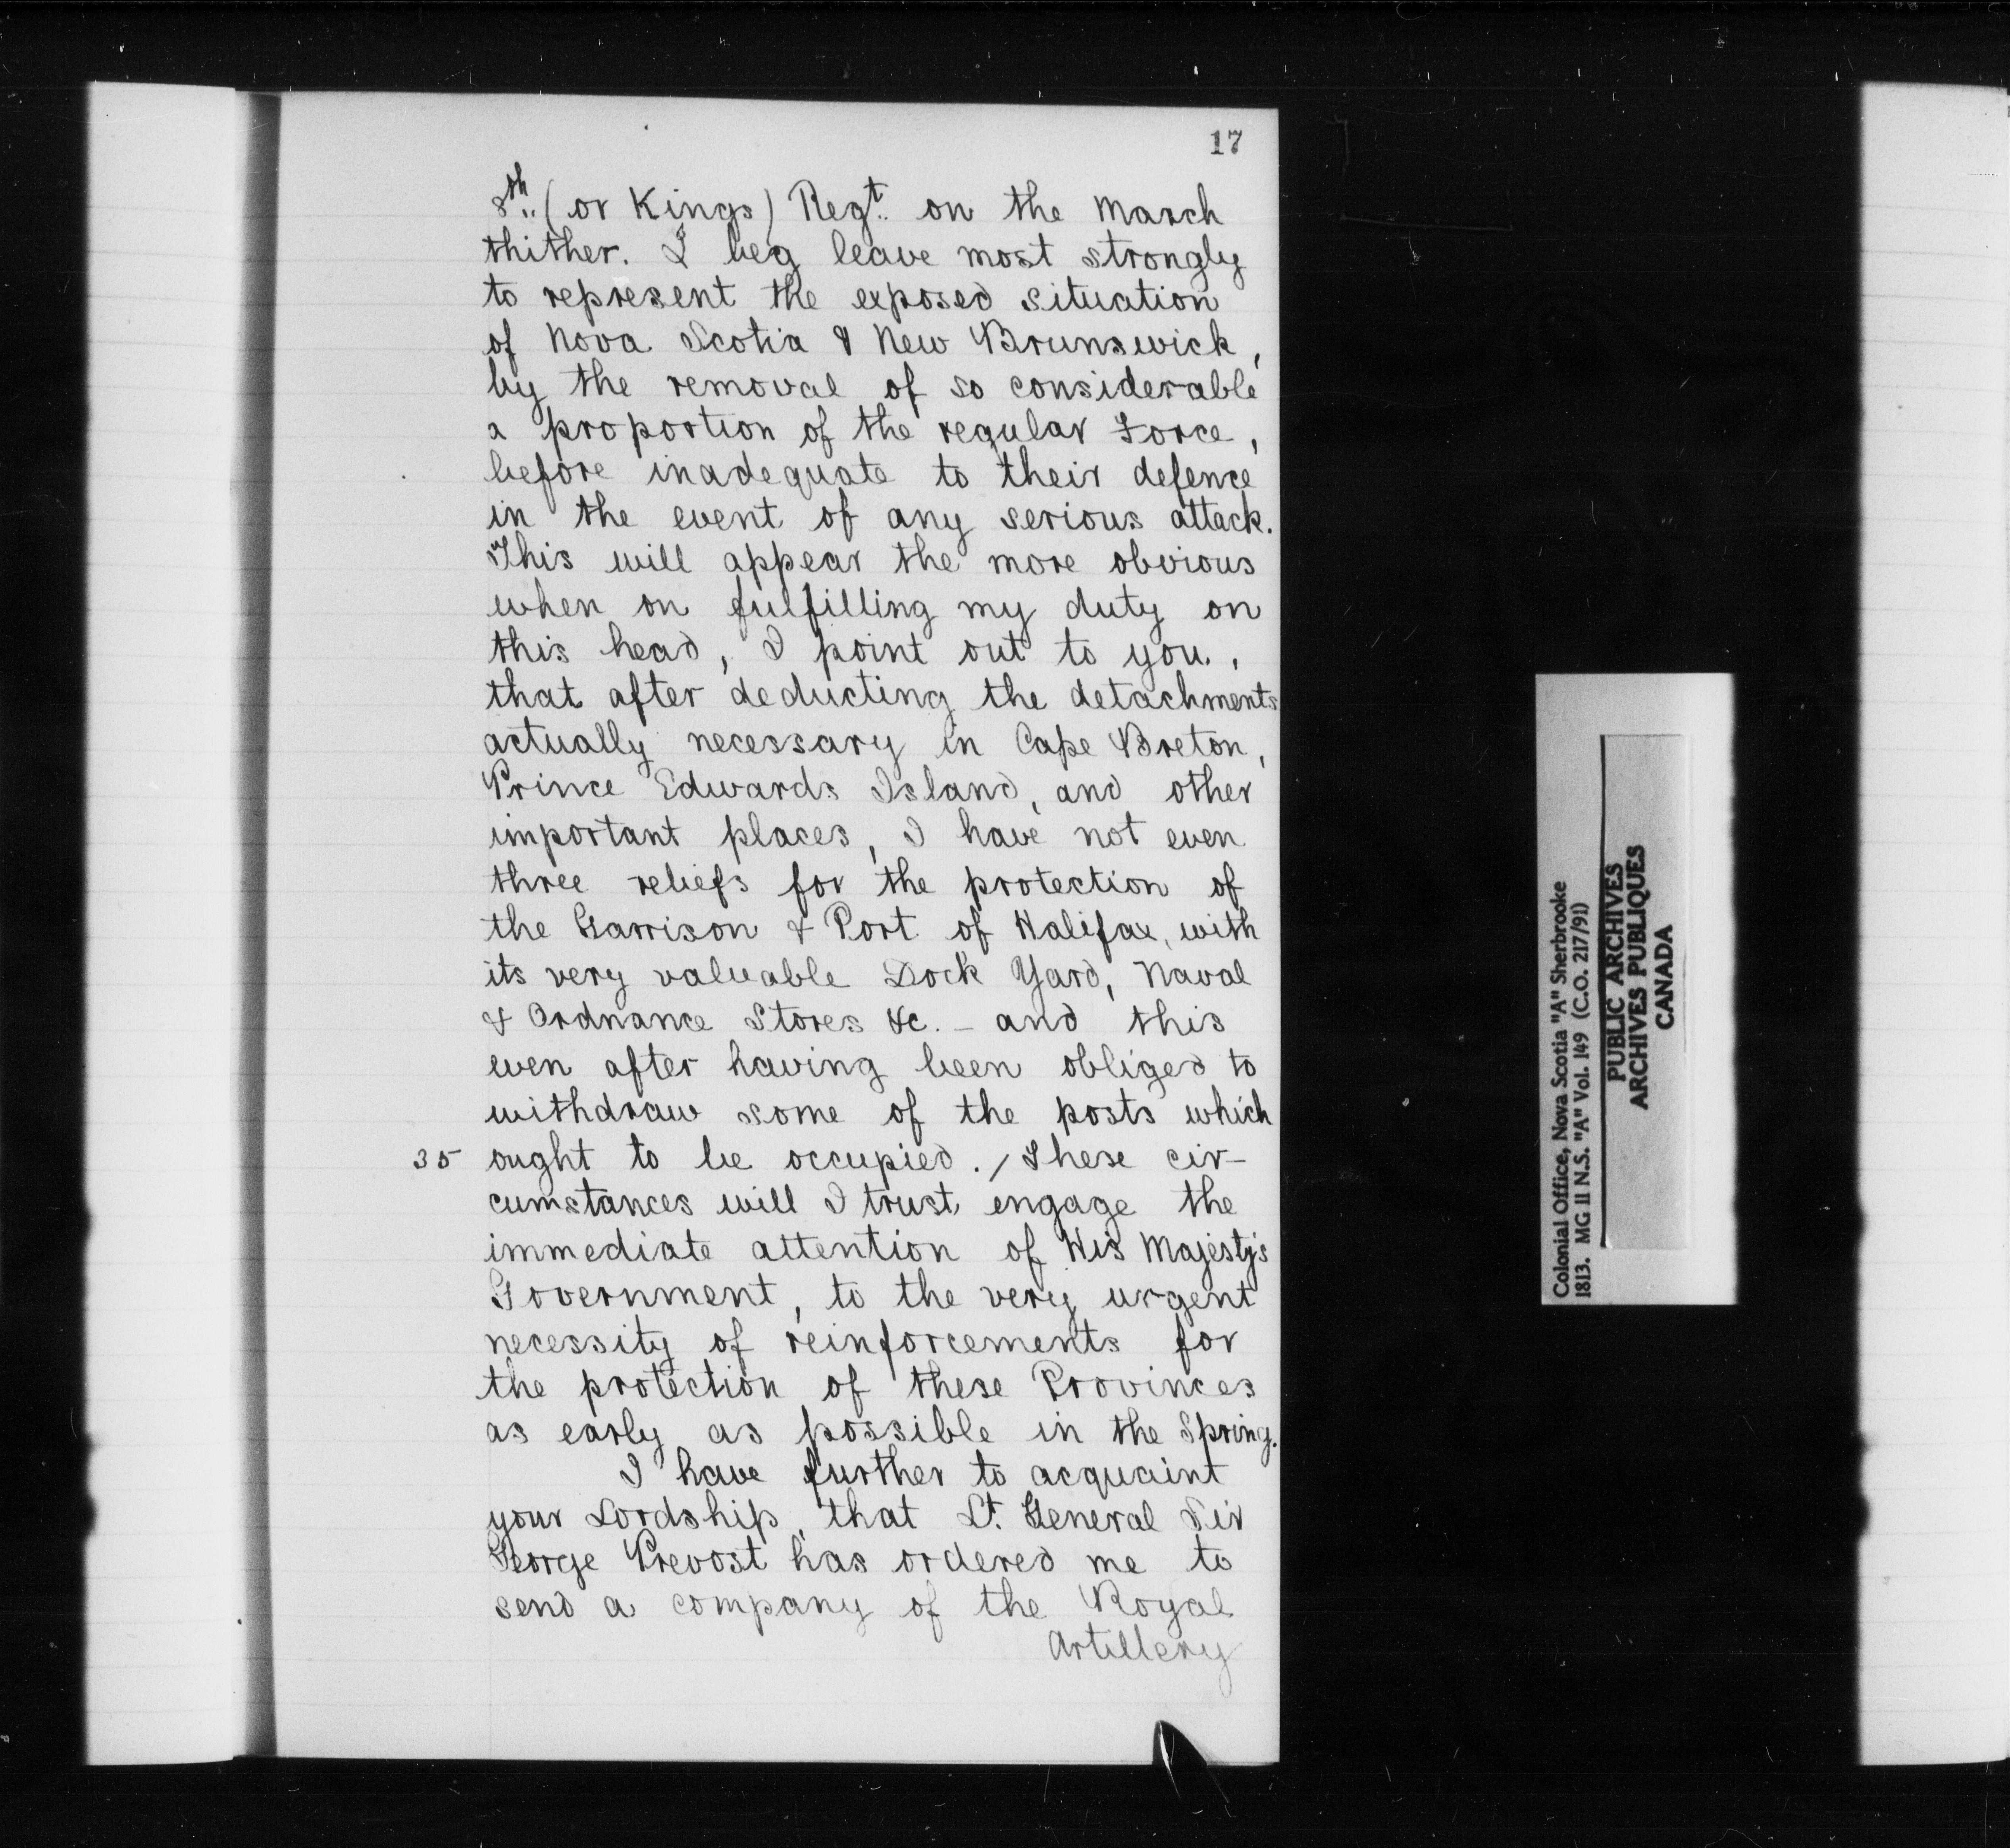 17
8th (or Kings) Regt. on the March
thither. I beg leave most strongly
to represent the exposed situation
of Nova Scotia & New Brunswick,
by the removal of so considerable
a proportion of the regular Force,
before inadequate to their defence
in the event of any serious attack.
This will appear the more obvious
when on fulfilling my duty on
this head, I point out to you,
that after deducting the detachments
actually necessary in Cape Breton,
Prince Edwards Island, and other
important places, I have not even
three reliefs for the protection of
the Garrison & Port of Halifax, with
its very valuable Dock Yard, Naval
& Ordnance Stores &c. - and this
even after having been obliged to
withdraw some of the posts which
35 ought to be occupied. / These cir-
cumstances will I trust engage the
immediate attention of His Majesty's
Government, to the very urgent
necessity of reinforcements for
the protection of these Provinces
as early as possible in the Spring.
I have further to acquaint
your Lordship, that Lt. General Sir
George Prevost has ordered me to
send a company of the Royal
Artillery
Colonial Office, Nova Scotia "A" Sherbrooke
1813. MG 11 N.S. "A" Vol. 149 (C.O. 217/91)
PUBLIC ARCHIVES
ARCHIVES PUBLIQUES
CANADA